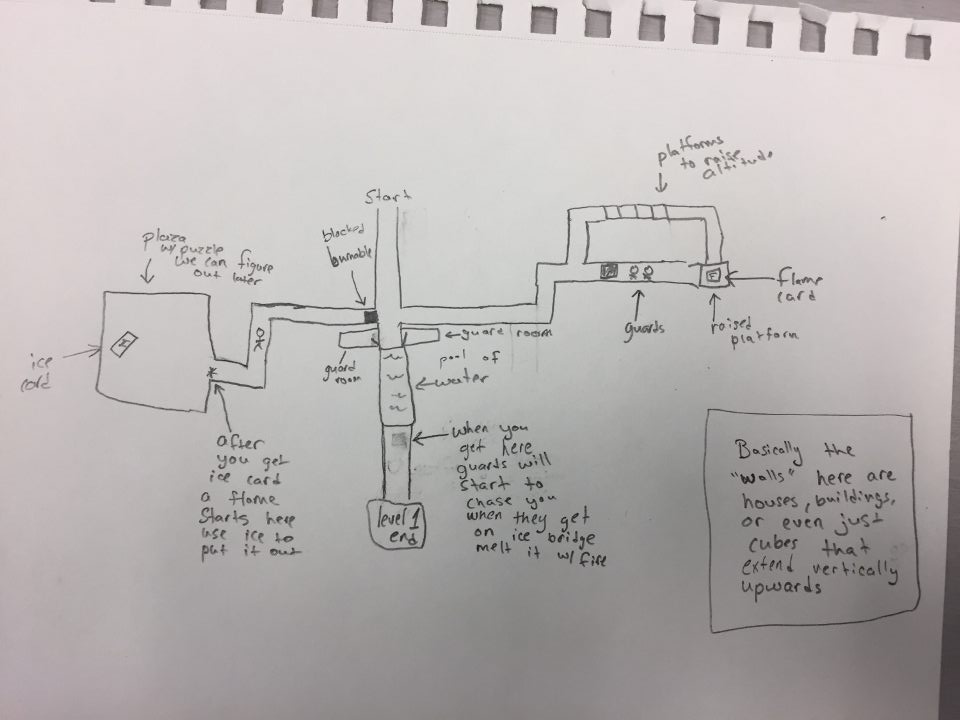 platforms
to raise
altitude
Start
blocked
burnable
plaza
w/ puzzle
we can figure
out later
flame
card
guards
raised
platform
guard room
guard
room
pool of
water
ice
card
after
you get
ice card
a flame
starts here
use ice to
put it out
when you
get here
guards will
start to
chase you
when they get
on ice bridge
melt it w/ fire
level 1
end
Basically the
"walls" here are
houses, buildings,
or even just
cubes that
extend vertically
upwards